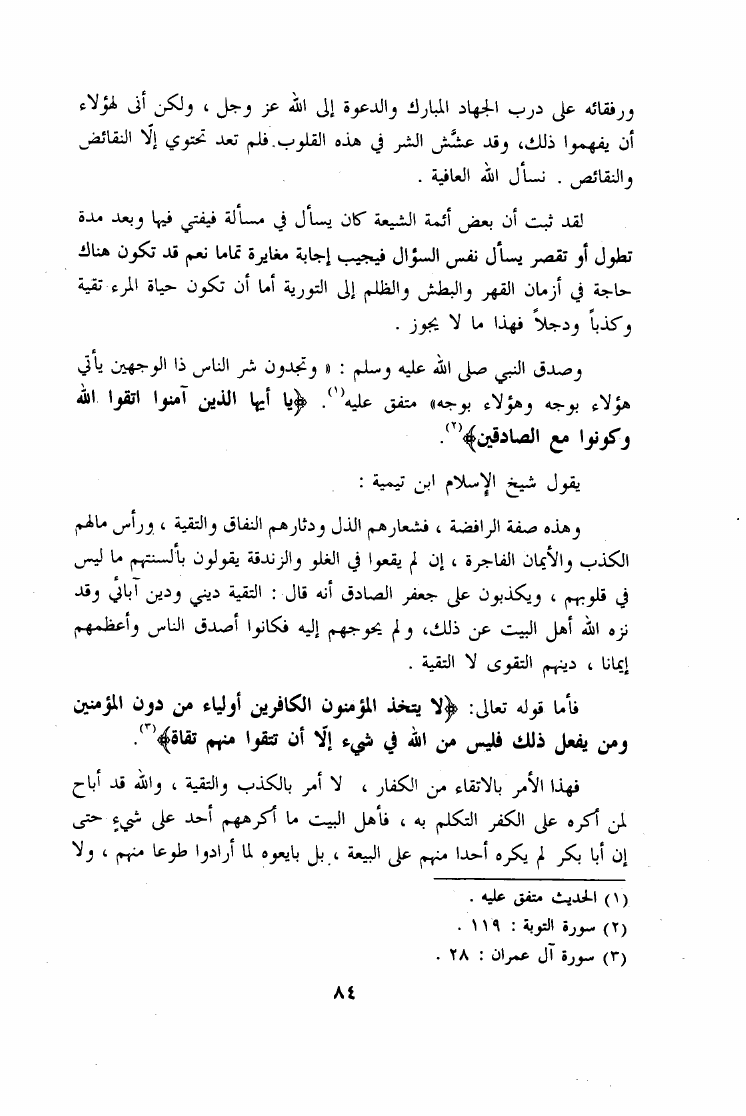 ورفقائه على درب الجهاد المبارك والدعوة إلى الله عز وجل ، ولكن أنى لهؤلاء
أن يفهموا ذلك، وقد عشَّش الشر في هذه القلوب.فلم تعد تحتوي إلّا النقائض
والنقائص . نسأل الله العافية .
لقد ثبت أن بعض أئمة الشيعة كان يسأل في مسألة فيفتي فيها وبعد مدة
تطول أو تقصر يسأل نفس السؤال فيجيب إجابة مغايرة تماما نعم قد تكون هناك
حاجة في أزمان القهر والبطش والظلم إلى التورية أما أن تكون حياة المرء تقية
وكذباً ودجلاً فهذا ما لا يجوز .
وصدق النبي صلى الله عليه وسلم : « وتجدون شر الناس ذا الوجهين يأتي
هؤلاء بوجه وهؤلاء بوجه» متفق عليه(١). ﴿يا أيها الذين آمنوا اتقوا الله
وكونوا مع الصادقين﴾(٢).
يقول شيخ الإسلام ابن تيمية :
وهذه صفة الرافضة ، فشعارهم الذل ودثارهم النفاق والتقية ، ورأس مالهم
الكذب والأيمان الفاجرة ، إن لم يقعوا في الغلو والزندقة يقولون بألسنتهم ما ليس
في قلوبهم ، ويكذبون على جعفر الصادق أنه قال : التقية ديني ودين آبائي وقد
نزه الله أهل البيت عن ذلك، ولم يحوجهم إليه فكانوا أصدق الناس وأعظمهم
إيمانا ، دينهم التقوى لا التقية .
فأما قوله تعالى: ﴿لا يتخذ المؤمنون الكافرين أولياء من دون المؤمنين
ومن يفعل ذلك فليس من الله في شيء إلّا أن تتقوا منهم تقاة﴾(٣).
فهذا الأمر بالاتقاء من الكفار ، لا أمر بالكذب والتقية ، والله قد أباح
لمن أكره على الكفر التكلم به ، فأهل البيت ما أكرههم أحد على شيءٍ حتى
إن أبا بكر لم يكره أحدا منهم على البيعة ، بل بايعوه لما أرادوا طوعا منهم ، ولا
(١) الحديث متفق عليه .
(٢) سورة التوبة : ١١٩ .
(٣) سورة آل عمران : ٢٨ .
٨٤